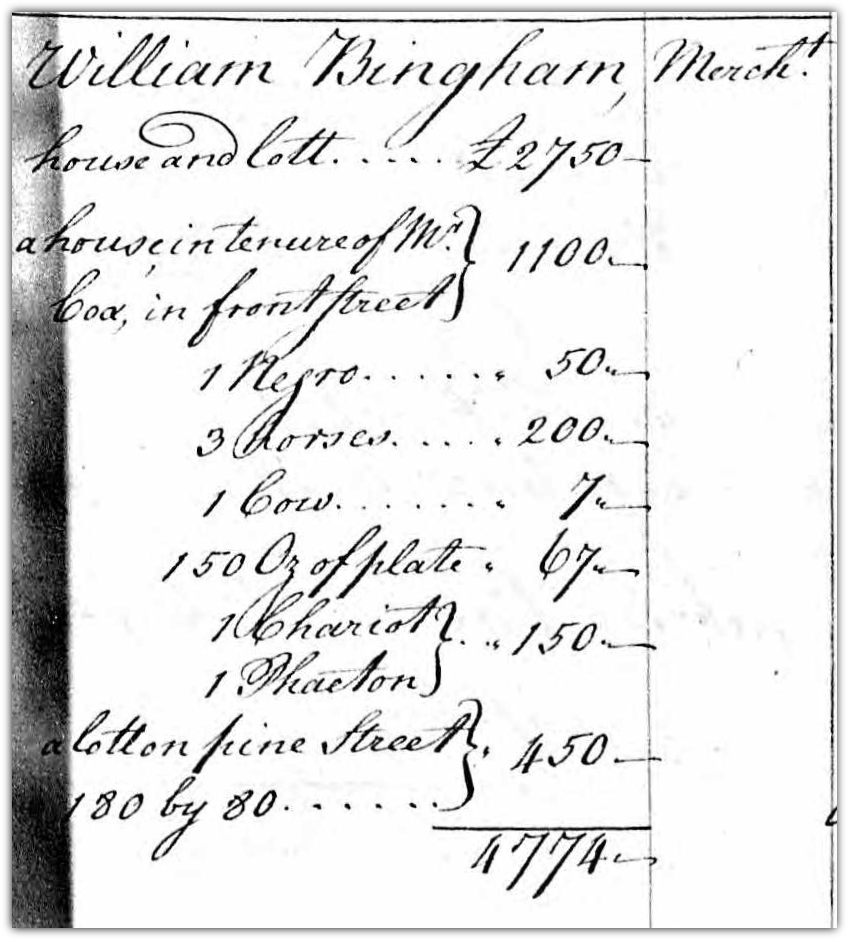 William Bingham, Mercht.
house and lott. . . . . . £2750-
a house, in tenure of Mr. } 1100"-
Cox, in front street
1 Negro. . . . . . " 50"-
3 horses. . . . . " 200"-
1 Cow. . . . . . . " 7"-
150 Oz of plate " 67"-
1 Chariot } . " 150"-
1 Phaeton
a lott on pine Street } " 450-
180 by 80. . . . . . .
4774"-